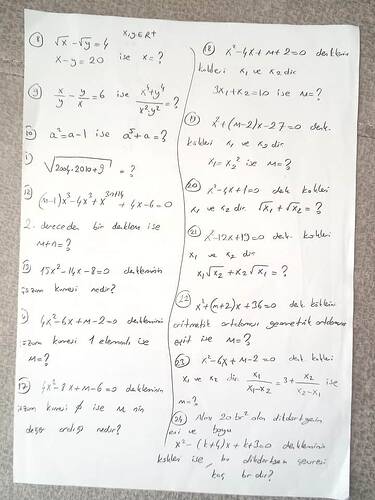 x,y∈R+
8 √x - √y = 4
x - y = 20 ise x = ?
9 x/y - y/x = 6 ise (x⁴+y⁴)/(x²y²) = ?
10 a² = a-1 ise a⁵+a = ?
√(2004.2010+9) = ?
12 (m-1)x³ - 4x² + x^(3n+14) + 4x - 6 = 0
2. dereceden bir denklem ise
m+n = ?
15x² - 14x - 8 = 0 denkleminin
çözüm kümesi nedir?
4x² - 6x + m - 2 = 0 denkleminin
çözüm kümesi 1 elemanlı ise
m = ?
17 4x² - 8x + m - 6 = 0 denkleminin
çözüm kümesi ∅ ise m nin
değer aralığı nedir?
18 x² - 4x + m + 2 = 0 denkleminin
kökleri x₁ ve x₂ dir.
3x₁ + x₂ = 10 ise m = ?
19 x² + (m-2)x - 27 = 0 denk.
kökleri x₁ ve x₂ dir
x₁ = x₂² ise m = ?
20 x² - 4x + 1 = 0 denk kökleri
x₁ ve x₂ dir. √x₁ + √x₂ = ?
21 x² - 12x + 19 = 0 denk. kökleri
x₁ ve x₂ dir
x₁√x₂ + x₂√x₁ = ?
22 x² + (m+2)x + 36 = 0 denk köklerinin
aritmetik ortalaması geometrik ortalamasına
eşit ise m = ?
23 x² - 6x + m - 2 = 0 denk kökleri
x₁ ve x₂ dir. x₁/(x₁-x₂) = 3 + x₂/(x₂-x₁) ise
m = ?
24 Alanı 20 br² olan dikdörtgenin
eni ve boyu
x² - (k+4)x + k+3 = 0 denkleminin
kökleri ise, bu dikdörtgenin çevresi
kaç br dir?